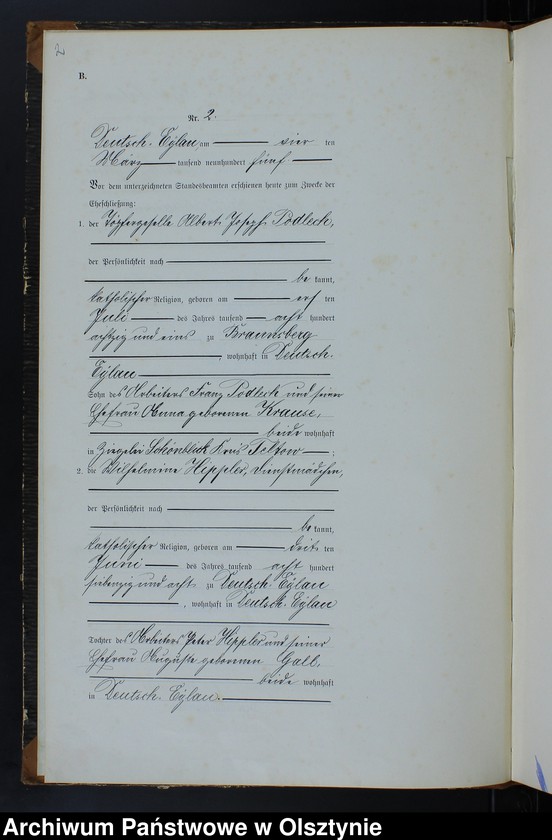 2
B.
Nr. 2.
Deutsch. Eylau am vier ten
März tausend neunhundert fünf
Vor dem unterzeichneten Standesbeamten erschienen heute zum Zwecke der
Eheschließung:
1. der Töpfergeselle Albert Joseph Podlech,
der Persönlichkeit nach
be kannt,
katholischer Religion, geboren am ten
Juli des Jahres tausend acht hundert
achtzig und eins zu Braunsberg
, wohnhaft in Deutsch.
Eylau
Sohn des Arbeiters Franz Podlech und seiner
Ehefrau Anna geborenen Krause,
beide wohnhaft
in Ziegelei Schönblick Kreis Teltow ;
2. die Wilhelmine Hippler, Dienstmädchen,
der Persönlichkeit nach
be kannt,
katholischer Religion, geboren am drit ten
Juni des Jahres tausend acht hundert
siebenzig und acht zu Deutsch. Eylau
, wohnhaft in Deutsch. Eylau
Tochter des Arbeiters Peter Hippler und seiner
Ehefrau Auguste geborenen Gall,
beide wohnhaft
in Deutsch. Eylau.
Archiwum Państwowe w Olsztynie